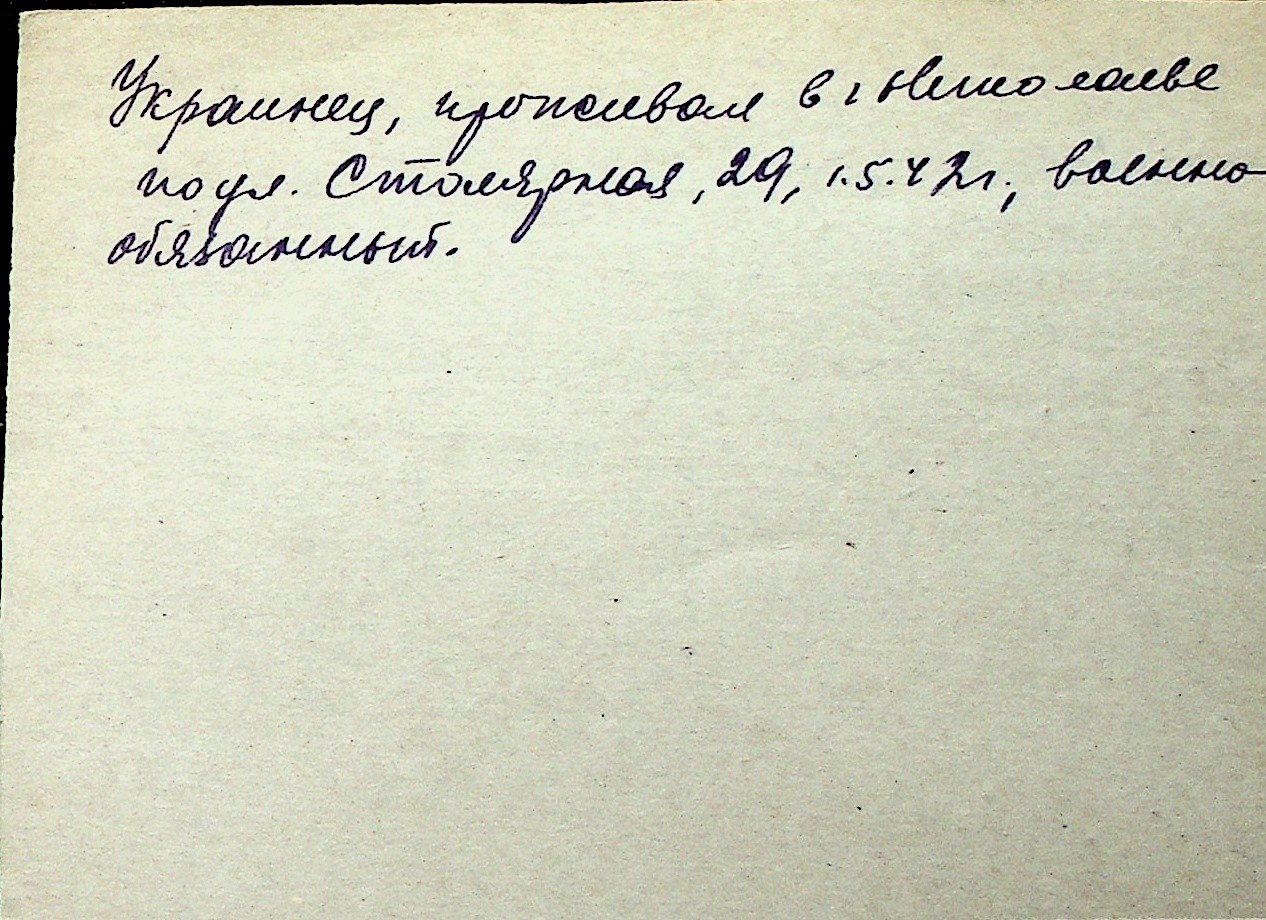 Украинец, проживал в г Николаеве
по ул. Столярная, 29, 1.5.42г., военно-
обязанный.